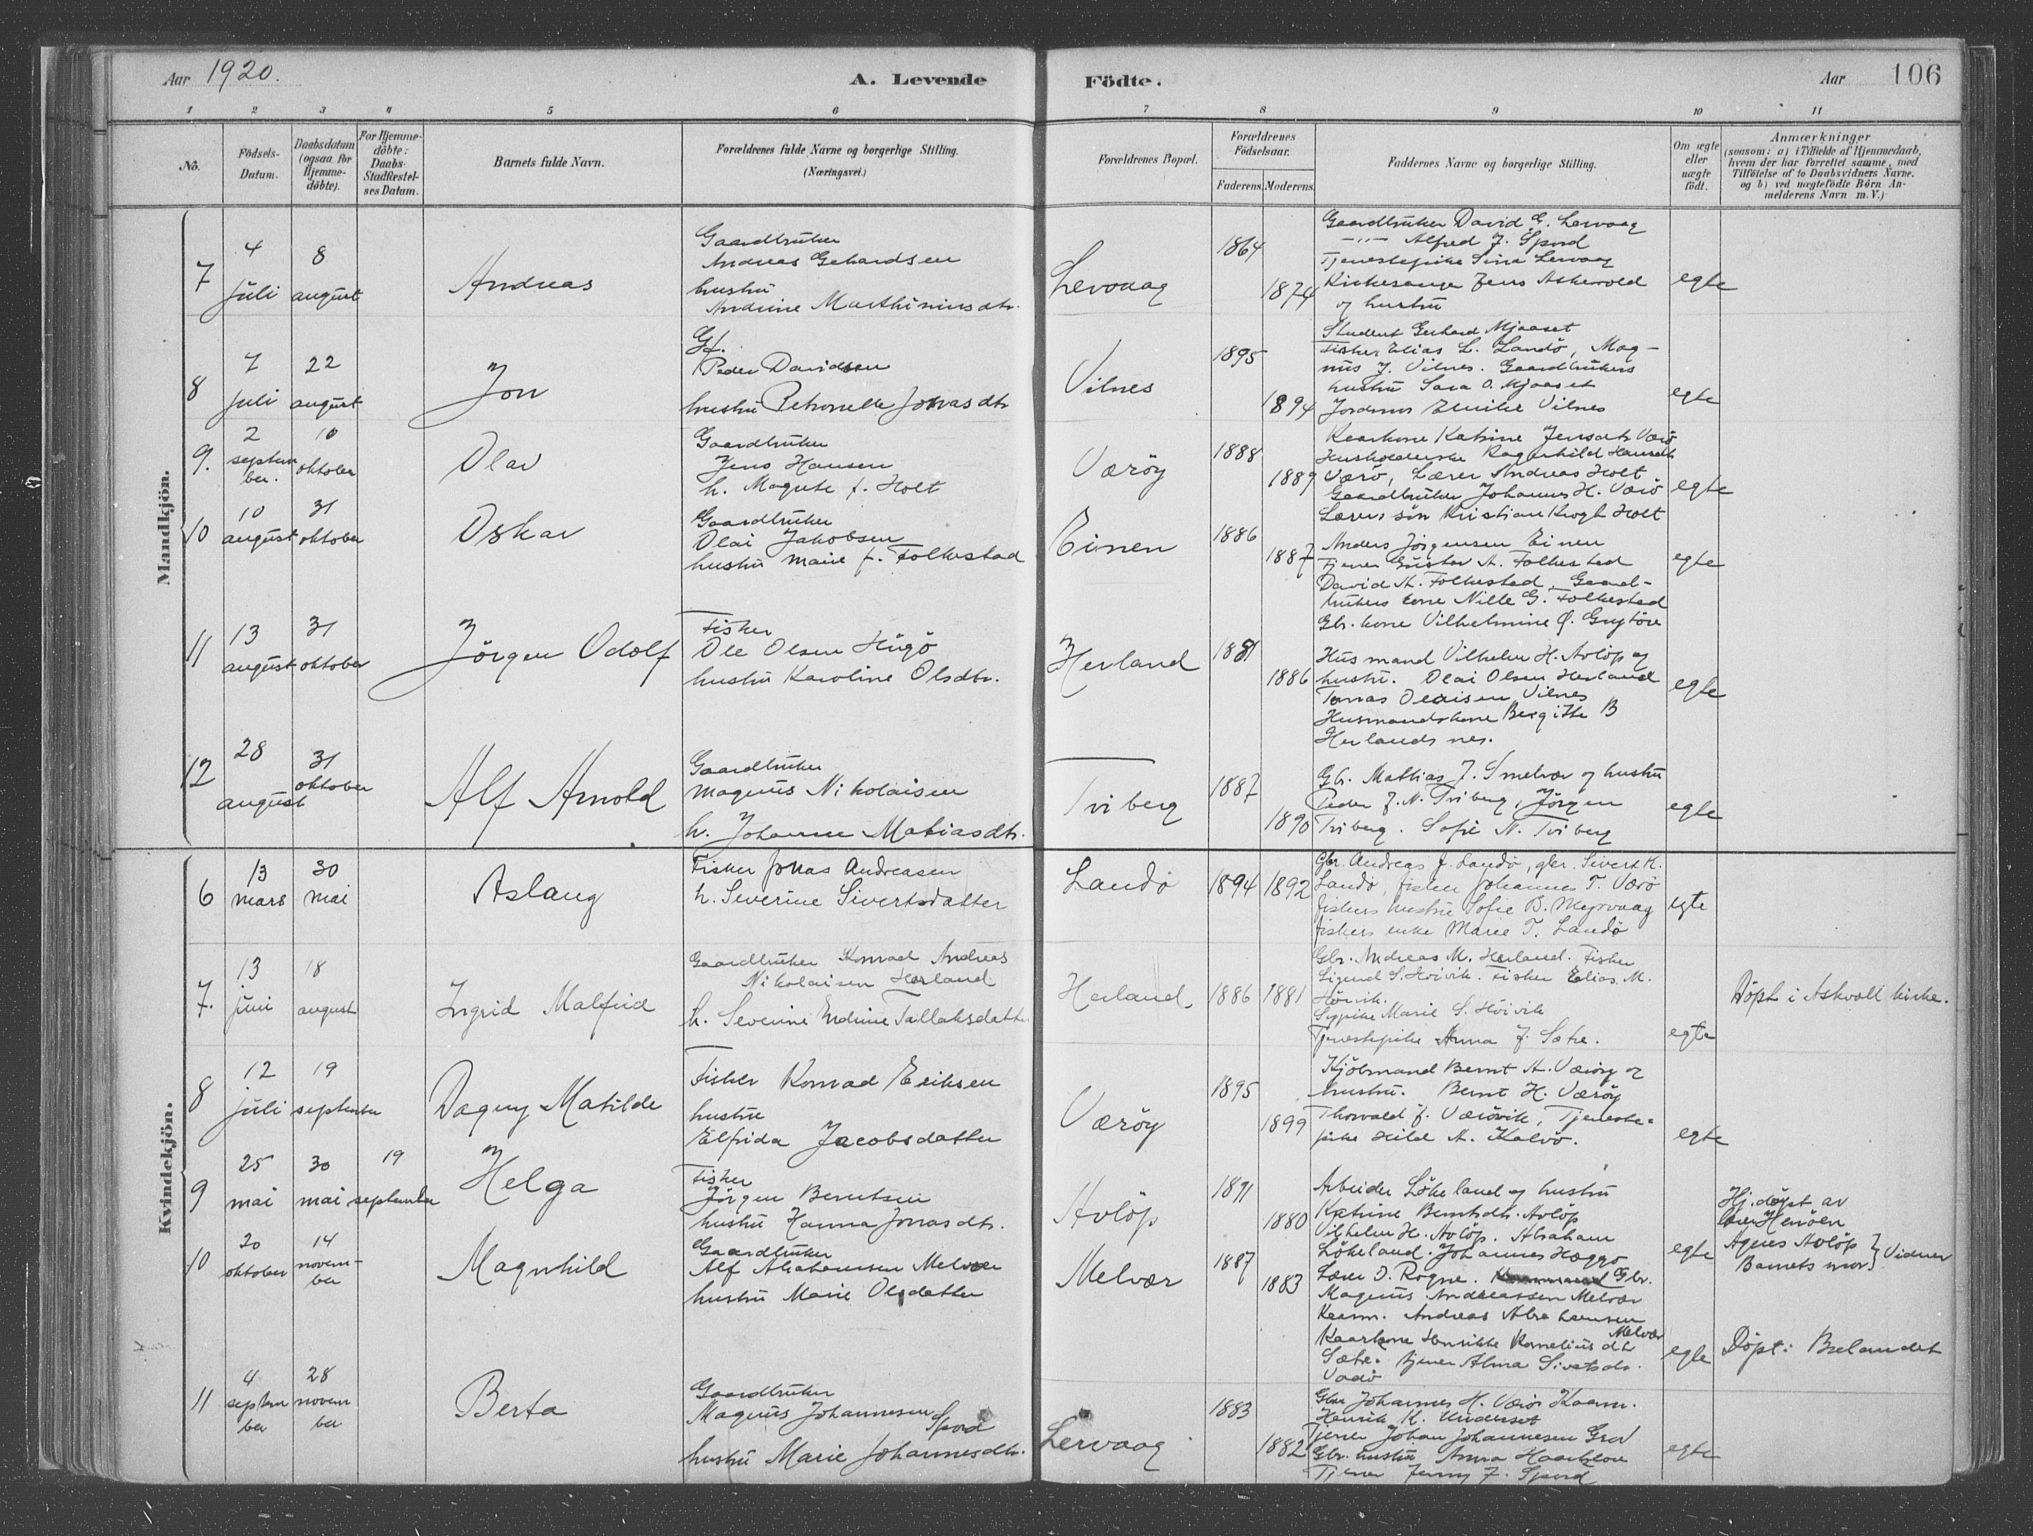 Aar 1920.
A. Levende
Födte.
Aar 106
1 2 3 4 5 6 7 8 9 10 11
No.
Födsels-Datum.
Daabsdatum (ogsaa for Hjemme-döbte).
For Hjemme-döbte: Daabs-Stadfæstel-ses Datum.
Barnets fulde Navn.
Forældrenes fulde Navne og borgerlige Stilling. (Næringsvei.)
Forældrenes Bopæl.
Forældrenes Födselsaar.
Faderens. Moderens.
Faddernes Navne og borgerlige Stilling.
Om ægte eller uægte födt.
Anmærkninger
(saasom: a) i Tilfælde af Hjemmedaab,
hvem der har forrettet samme, med
Tilföielse af to Daabsvidners Navne.
og b) ved uægtefödte Börn An-
melderens Navn m. V.)
Mandkjön.
7
4 juli
8 august
Andreas
Gaardbruker
Andreas Gehardsen
hustru
Andrine Marthiniusdtr.
Levaag
1864
1874
Gaardbruker David G. Lervaag
—"— Alfred J. Spord
Tjenestepike Sina Lervaag
Kirkesanger Jens Askevold
og hustru
egte
8
7 juli
22 august
Jon
Gf.
Peder Davidsen
hustru Petronelle Jonasdtr
Vilnes
1895
1894
Student Gerhard Mjaaset
Fisker Elias L. Landö, Mag-
nus J. Vilnes. Gaardbrukers
hustru Sara O. Mjaaset
Jordmor Emilie Vilnes
egte
9.
2 septem
ber.
10 oktober
Olav
Gaardbruker
Jens Hansen
h. Magnhe f. Holt
Værøy
1888
1889
Kaarkone Katrine Jensdtr Værö
Husholderske Ragnhild Hansdtr
Værö, Lærer Andreas Holt
Gaardbruker Johannes H. Værö
Lærers sön Kristian Krogh Holt
egte
10
10 august
31 oktober
Oskar
Gaardbruker
Olai Jakobsen
hustru Marie f. Folkestad
Einen
1886
1887
Anders Jörgensen Einen
Tjener Gustav A. Folkestad
David A. Folkestad, Gaard-
brukers kone Nille G. Folkestad
Gbr. kone Vilhelmine Ø. Grytöra
egte
11
13 august
31 oktober
Jörgen Odolf
Fisker
Ole Olsen Hugö
hustru Karoline Olsdtr.
Herland
1881
1886
Husmand Vilhelm H. Avlöp og
hustru. Olai Olsen Herland
Tomas Olaisen Vilnes
Husmandskone Bergitte B
Herlandsnes.
egte
12
28 august
31 oktober
Alf Arnold
Gaardbruker
Magnus Nikolaisen
h. Johanne Matiasdtr.
Tviberg
1887
1890
Gb. Mathias J. Smelvær og hustru
Peder J. N. Tviberg, Jörgen
Tviberg. Sofie N. Tviberg
egte
Kvindekjön.
6
13 mars
30 mai
Aslaug
Fisker Jonas Andreasen
h. Severine Sivertsdatter
Landö
1894 1892
Gbr. Andreas J. Landö, gbr. Sivert K.
Landö, fisker Johannes T. Værö
fiskers hustru Sofie B. Myrvaag
fiskers enke Marie T. Landö
egte
7.
13 juni
18 august
Ingrid Malfrid
Gaardbruker Konrad Andreas
Nikolaisen Herland
h. Severine Endrine Tallaksdatter
Herland
1886 1881
Gbr. Andreas M. Herland. Fisker
Sigurd S. Höivik. Fisker Elias M.
Höivik.
Sypike Marie S. Höivik
Tjenestepike Anna J. Sætre.
egte
Döpt i Askvoll kirke.
8
12 juli
19 september
Dagny Matilde
Fisker Konrad Eriksen
hustru
Elfrida Jacobsdatter
Værøy
1895
1899
Kjöbmand Bernt A. Værøy og
hustru. Bernt H. Værøy
Thorvald J. Værövik, Tjeneste-
pike Hild A. Kalvö.
egte
9
25 mai
30 mai
19 september
Helga
Fisker
Jörgen Berntsen
hustru Hanna Jonasdtr.
Avlöp
1891
1880
Arbeider Lökeland og hustru
Katrine Berntsdtr. Avlöp
Vilhelm H. Avlöp. Abraham
Lökeland. Johannes Hægge
egte
Hj. döpt av
lærer Heröen
Agnes Avlöp } Vidner
Barnets mor
10
20 oktober
14 novem-
ber
Magnhild
Gaardbruker
Alf Abrahamsen Melvær
hustru Marie Olsdatter
Melvær
1887
1883
Lærer D. Rogne. Gbr.
Magnus Andreassen Melvær
Kaarm. Andreas Abrahamsen
Melvær
Kaarkone Henrikke Korneliusdtr
Sætre. tjener Alma Sivertsdtr.
Vadö
egte
Döpt i Bulandet
11
4 septem
ber
28 novem
ber
Berta
Gaardbruker
Magnus Johannesen
Spord
hustru Marie Johannesdtr.
Lervaag
1883
1882
Gbr Johannes H. Værö Kaarm.
Henrik K. Underset
Tjener Johan Johannesen Grov
Gbr. hustru Anna Haarklov
Tjener Jenny J. Spord
egte